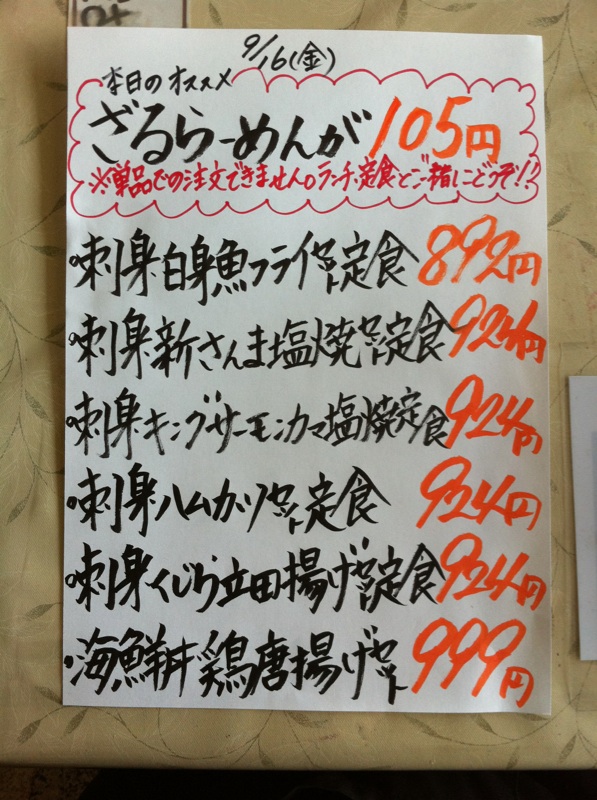 9/16(金)
本日のオススメ
ざるらーめんが105円
※単品での注文できません。ランチ、定食とご一緒にどうぞ!?
・刺身白身魚フライセット定食 892円
・刺身新さんま塩焼セット定食 924円
・刺身キングサーモンカマ塩焼定食 924円
・刺身ハムカツセット定食 924円
・刺身くじら立田揚げセット定食 924円
・海鮮丼鶏唐揚げセット 999円